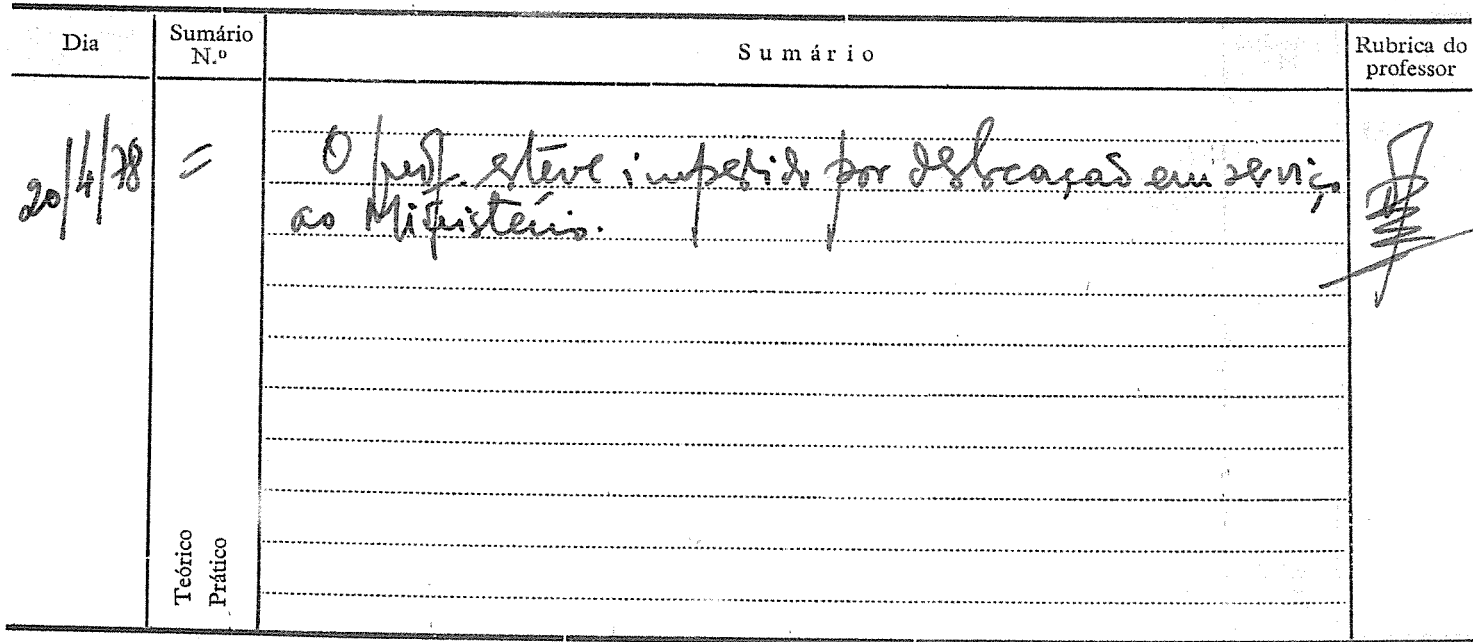 Dia
Sumário
N.º
Sumário
Rubrica do
professor
20/4/78
=
O prof. esteve impedido por deslocação em serviço
ao Ministério.
Teórico
Prático